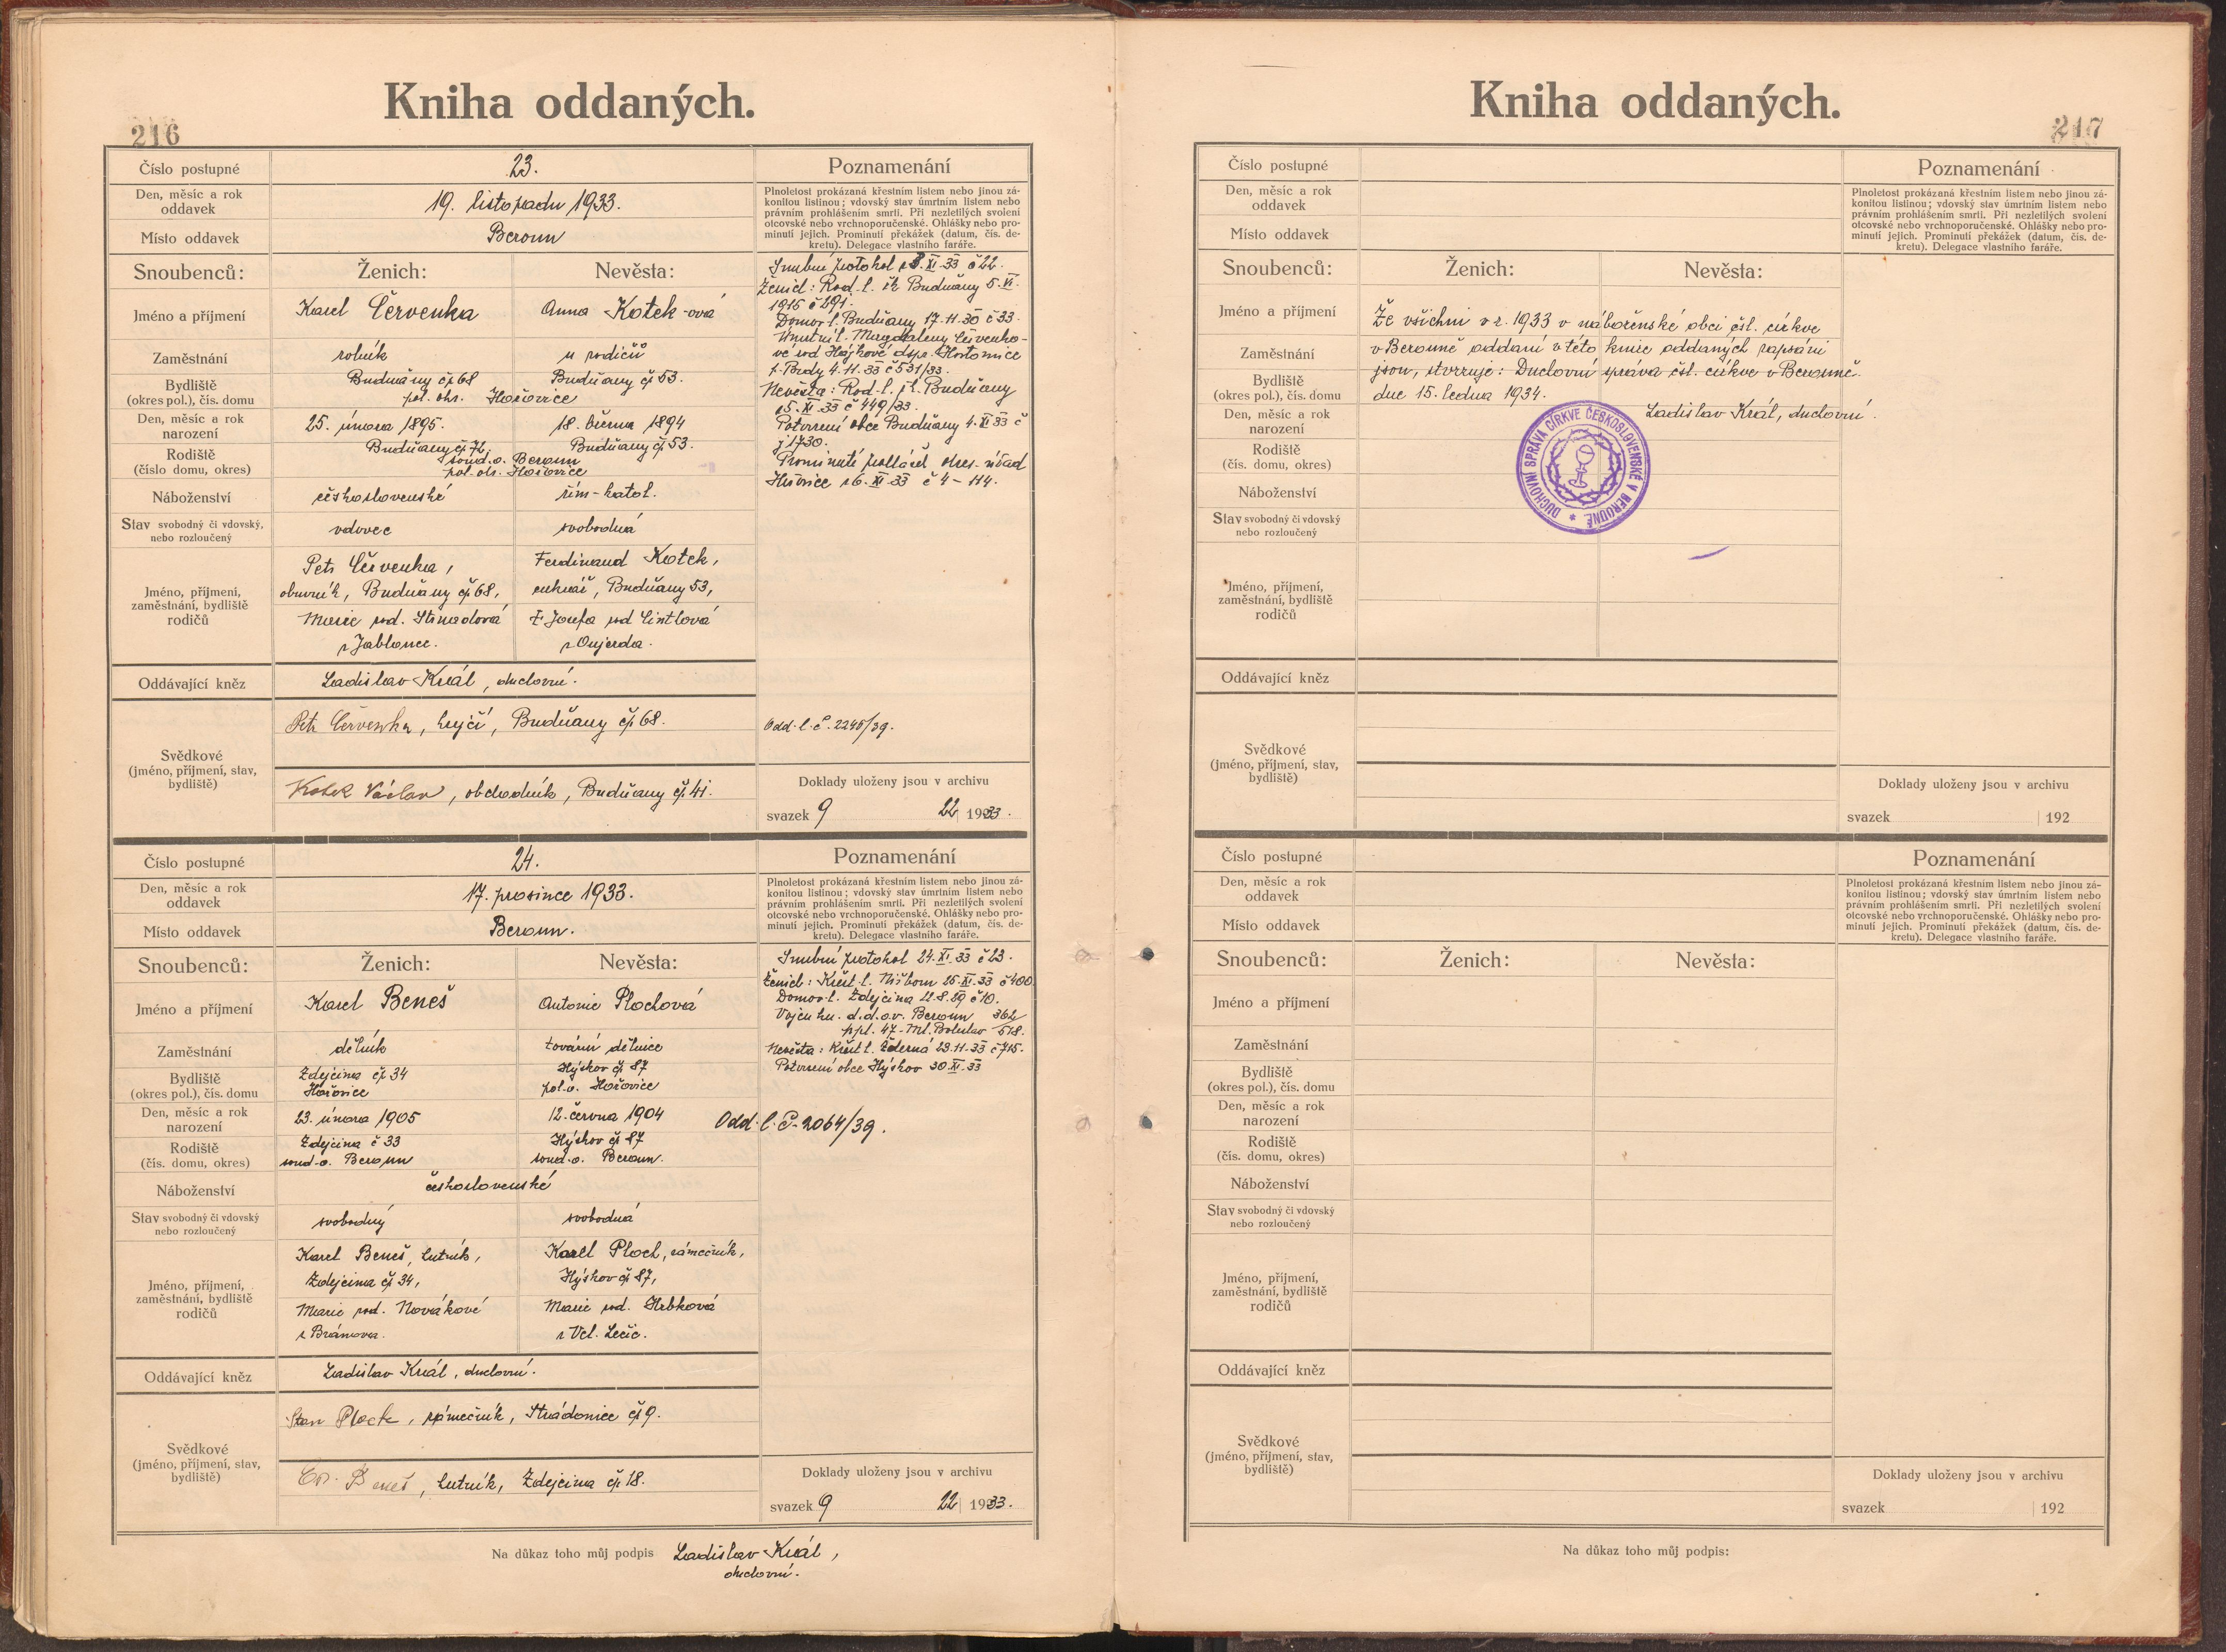 Kniha oddaných.
216
Číslo postupné
23.
Den, měsíc a rok
oddavek
19. listopadu 1933.
Místo oddavek
Beroun
Poznamenání
Plnoletost prokázaná křestním listem nebo jinou zá-
konitou listinou; vdovský stav úmrtním listem nebo
právním prohlášením smrti. Při nezletilých svolení
otcovské nebo vrchnoporučenské. Ohlášky nebo pro-
minutí jejich. Prominutí překážek (datum, čís. de-
kretu). Delegace vlastního faráře.
Snoubenců:
Ženich:
Nevěsta:
Jméno a příjmení
Karel Červenka
Anna Kotek-ová
Zaměstnání
rolník
u rodičů
Bydliště
(okres pol.), čís. domu
Budňany čp 68
Budňany čp 53.
pol. okr. Hořovice
Den, měsíc a rok
narození
25. února 1895.
18. března 1894
Rodiště
(číslo domu, okres)
Budňany čp 72,
Budňany čp 53.
soud. o. Beroun
pol. okr. Hořovice
Náboženství
československé
řím-katol.
Stav svobodný či vdovský,
nebo rozloučený
vdovec
svobodná
Jméno, příjmení,
zaměstnání, bydliště
rodičů
Petr Červenka,
obuvník, Budňany čp 68,
Marie roz.
z Jablonec.
Ferdinand Kotek,
cukrář, Budňany 53,
Josefa roz
Oddávající kněz
Ladislav Král, duchovní.
Svědkové
(jméno, příjmení, stav,
bydliště)
Petr Červenka, krejčí, Budňany čp 68.
Kotek Václav, obchodník, Budňany čp 41.
Snubní protokol z 3. XI. 33 č 22.
Ženich: Rod. l. Budňany 5. VI.
1915 č 291.
Domov. l. Budňany 17.11.30 č 33.
Úmrtní l. Magdaleny Červenko-
vé roz Hájkové dspr. Hostomice
p. Brdy 4.11.33 č 531/33.
Nevěsta: Rod. l. Budňany
5. XI. 33 č 449/33.
Potvrzení obce Budňany 4. XI 33 č
j 1730.
Prominutí ohlášek okres. úřad
Hořovice 16. XI. 33 č 4-114.
Odd. l. č. 2245/39.
Doklady uloženy jsou v archivu
svazek 9 22 1933.
Číslo postupné
24.
Den, měsíc a rok
oddavek
17. prosince 1933.
Místo oddavek
Beroun.
Poznamenání
Plnoletost prokázaná křestním listem nebo jinou zá-
konitou listinou; vdovský stav úmrtním listem nebo
právním prohlášením smrti. Při nezletilých svolení
otcovské nebo vrchnoporučenské. Ohlášky nebo pro-
minutí jejich. Prominutí překážek (datum, čís. de-
kretu). Delegace vlastního faráře.
Snoubenců:
Ženich:
Nevěsta:
Jméno a příjmení
Karel Beneš
Antonie Plochová
Zaměstnání
dělník
tovární dělnice
Bydliště
(okres pol.), čís. domu
Zdejcina čp 34
Hořovice
Hýskov čp 87
pol. o. Hořovice
Den, měsíc a rok
narození
23. února 1905
12. června 1904
Rodiště
(čís. domu, okres)
Zdejcina č 33
soud. o. Beroun
Hýskov čp 87
soud. o. Beroun.
Náboženství
československé
Stav svobodný či vdovský
nebo rozloučený
svobodný
svobodná
Jméno, příjmení,
zaměstnání, bydliště
rodičů
Karel Beneš, hutník,
Zdejcina čp 34,
Marie roz. Nováková
z Bránova.
Karel Ploch, zámečník,
Hýskov čp 87,
Marie roz. Hrbková
z Vel. Lečic.
Oddávající kněz
Ladislav Král, duchovní.
Svědkové
(jméno, příjmení, stav,
bydliště)
Stan Ploch, zámečník, Stradonice čp 9.
Beneš, hutník, Zdejcina čp 18.
Snubní protokol 24. XI. 33 č 23.
Ženich: Křest. l. Nižbor 25. XI. 33 č 400.
Domov. l. Zdejcina 21.8.29 č 10.
Vojen. kn. d.d.o.v. Beroun 362
p.pl. 47 - Ml. Boleslav 518.
Nevěsta: Křest l. Žderná 23.11.33 č 715.
Potvrzení obce Hýskov 30. XI. 33
Odd. l. č. 2064/39.
Doklady uloženy jsou v archivu
svazek 9 22 1933.
Na důkaz toho můj podpis Ladislav Král,
duchovní.
Kniha oddaných.
217
Číslo postupné
Den, měsíc a rok
oddavek
Místo oddavek
Poznamenání
Plnoletost prokázaná křestním listem nebo jinou zá-
konitou listinou; vdovský stav úmrtním listem nebo
právním prohlášením smrti. Při nezletilých svolení
otcovské nebo vrchnoporučenské. Ohlášky nebo pro-
minutí jejich. Prominutí překážek (datum, čís. de-
kretu). Delegace vlastního faráře.
Snoubenců:
Ženich:
Nevěsta:
Jméno a příjmení
Zaměstnání
Bydliště
(okres pol.), čís. domu
Den, měsíc a rok
narození
Že všichni v r. 1933 v náboženské obci čsl. církve
v Berouně oddaní v této knize oddaných zapsáni
jsou, stvrzuje: Duchovní správa čsl. církve v Berouně.
dne 15. ledna 1934.
Ladislav Král, duchovní.
DUCHOVNÍ SPRÁVA CÍRKVE ČESKOSLOVENSKÉ V BEROUNĚ
Rodiště
(čís. domu, okres)
Náboženství
Stav svobodný či vdovský
nebo rozloučený
Jméno, příjmení,
zaměstnání, bydliště
rodičů
Oddávající kněz
Svědkové
(jméno, příjmení, stav,
bydliště)
Doklady uloženy jsou v archivu
svazek 192
Číslo postupné
Den, měsíc a rok
oddavek
Místo oddavek
Poznamenání
Plnoletost prokázaná křestním listem nebo jinou zá-
konitou listinou; vdovský stav úmrtním listem nebo
právním prohlášením smrti. Při nezletilých svolení
otcovské nebo vrchnoporučenské. Ohlášky nebo pro-
minutí jejich. Prominutí překážek (datum, čís. de-
kretu). Delegace vlastního faráře.
Snoubenců:
Ženich:
Nevěsta:
Jméno a příjmení
Zaměstnání
Bydliště
(okres pol.), čís. domu
Den, měsíc a rok
narození
Rodiště
(čís. domu, okres)
Náboženství
Stav svobodný či vdovský
nebo rozloučený
Jméno, příjmení,
zaměstnání, bydliště
rodičů
Oddávající kněz
Svědkové
(jméno, příjmení, stav,
bydliště)
Doklady uloženy jsou v archivu
svazek 192
Na důkaz toho můj podpis: